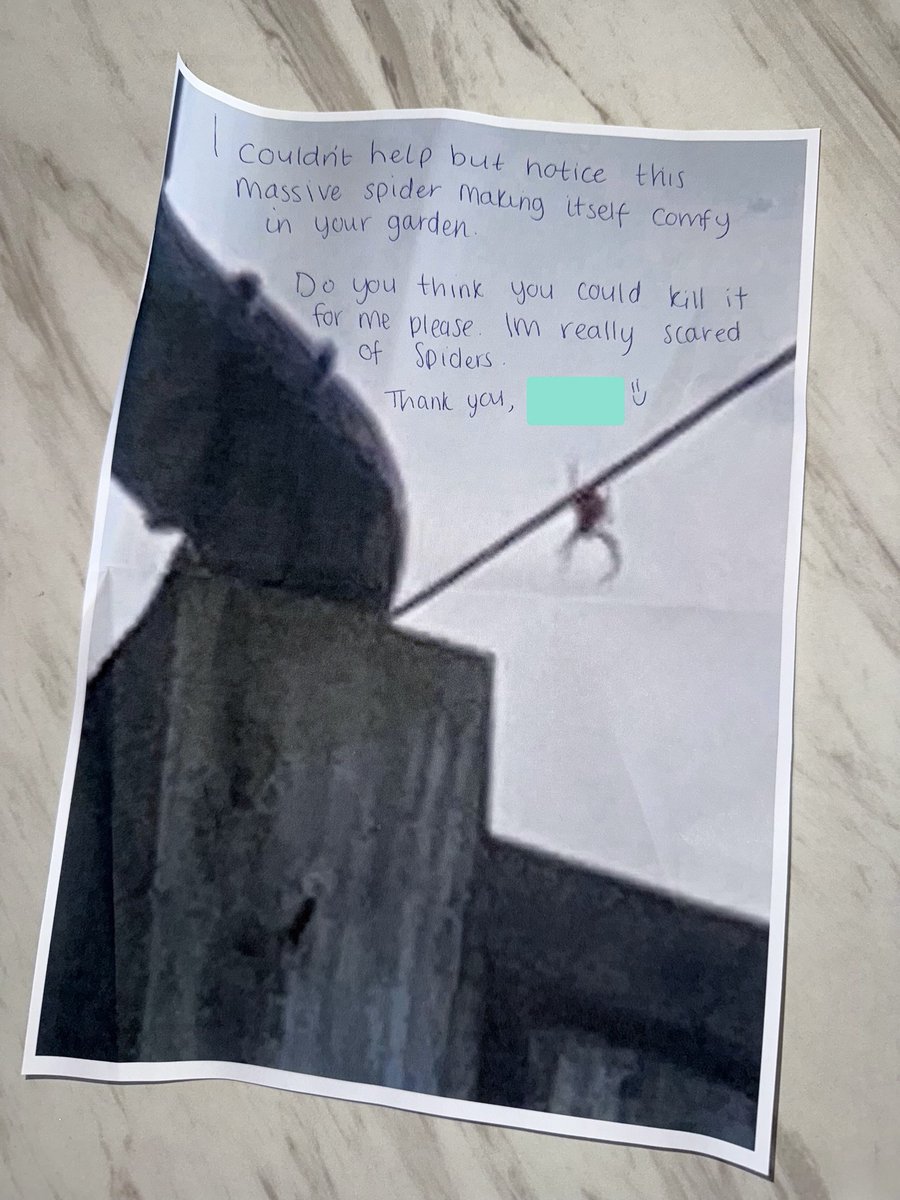 I couldn't help but notice this
massive spider making itself comfy
in your garden.
Do you think you could kill it
for me please. Im really scared
of spiders.
Thank you,